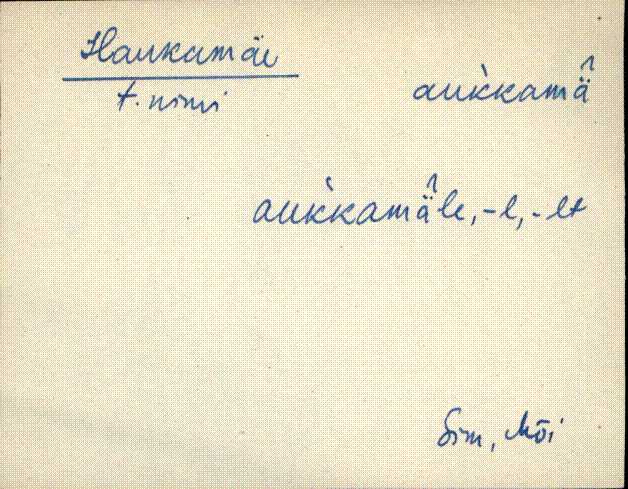 Haukamäe
t. nimi
auk̀kamä̂
auk̀kamä̂le, -l, -lt
Sim, Mõi